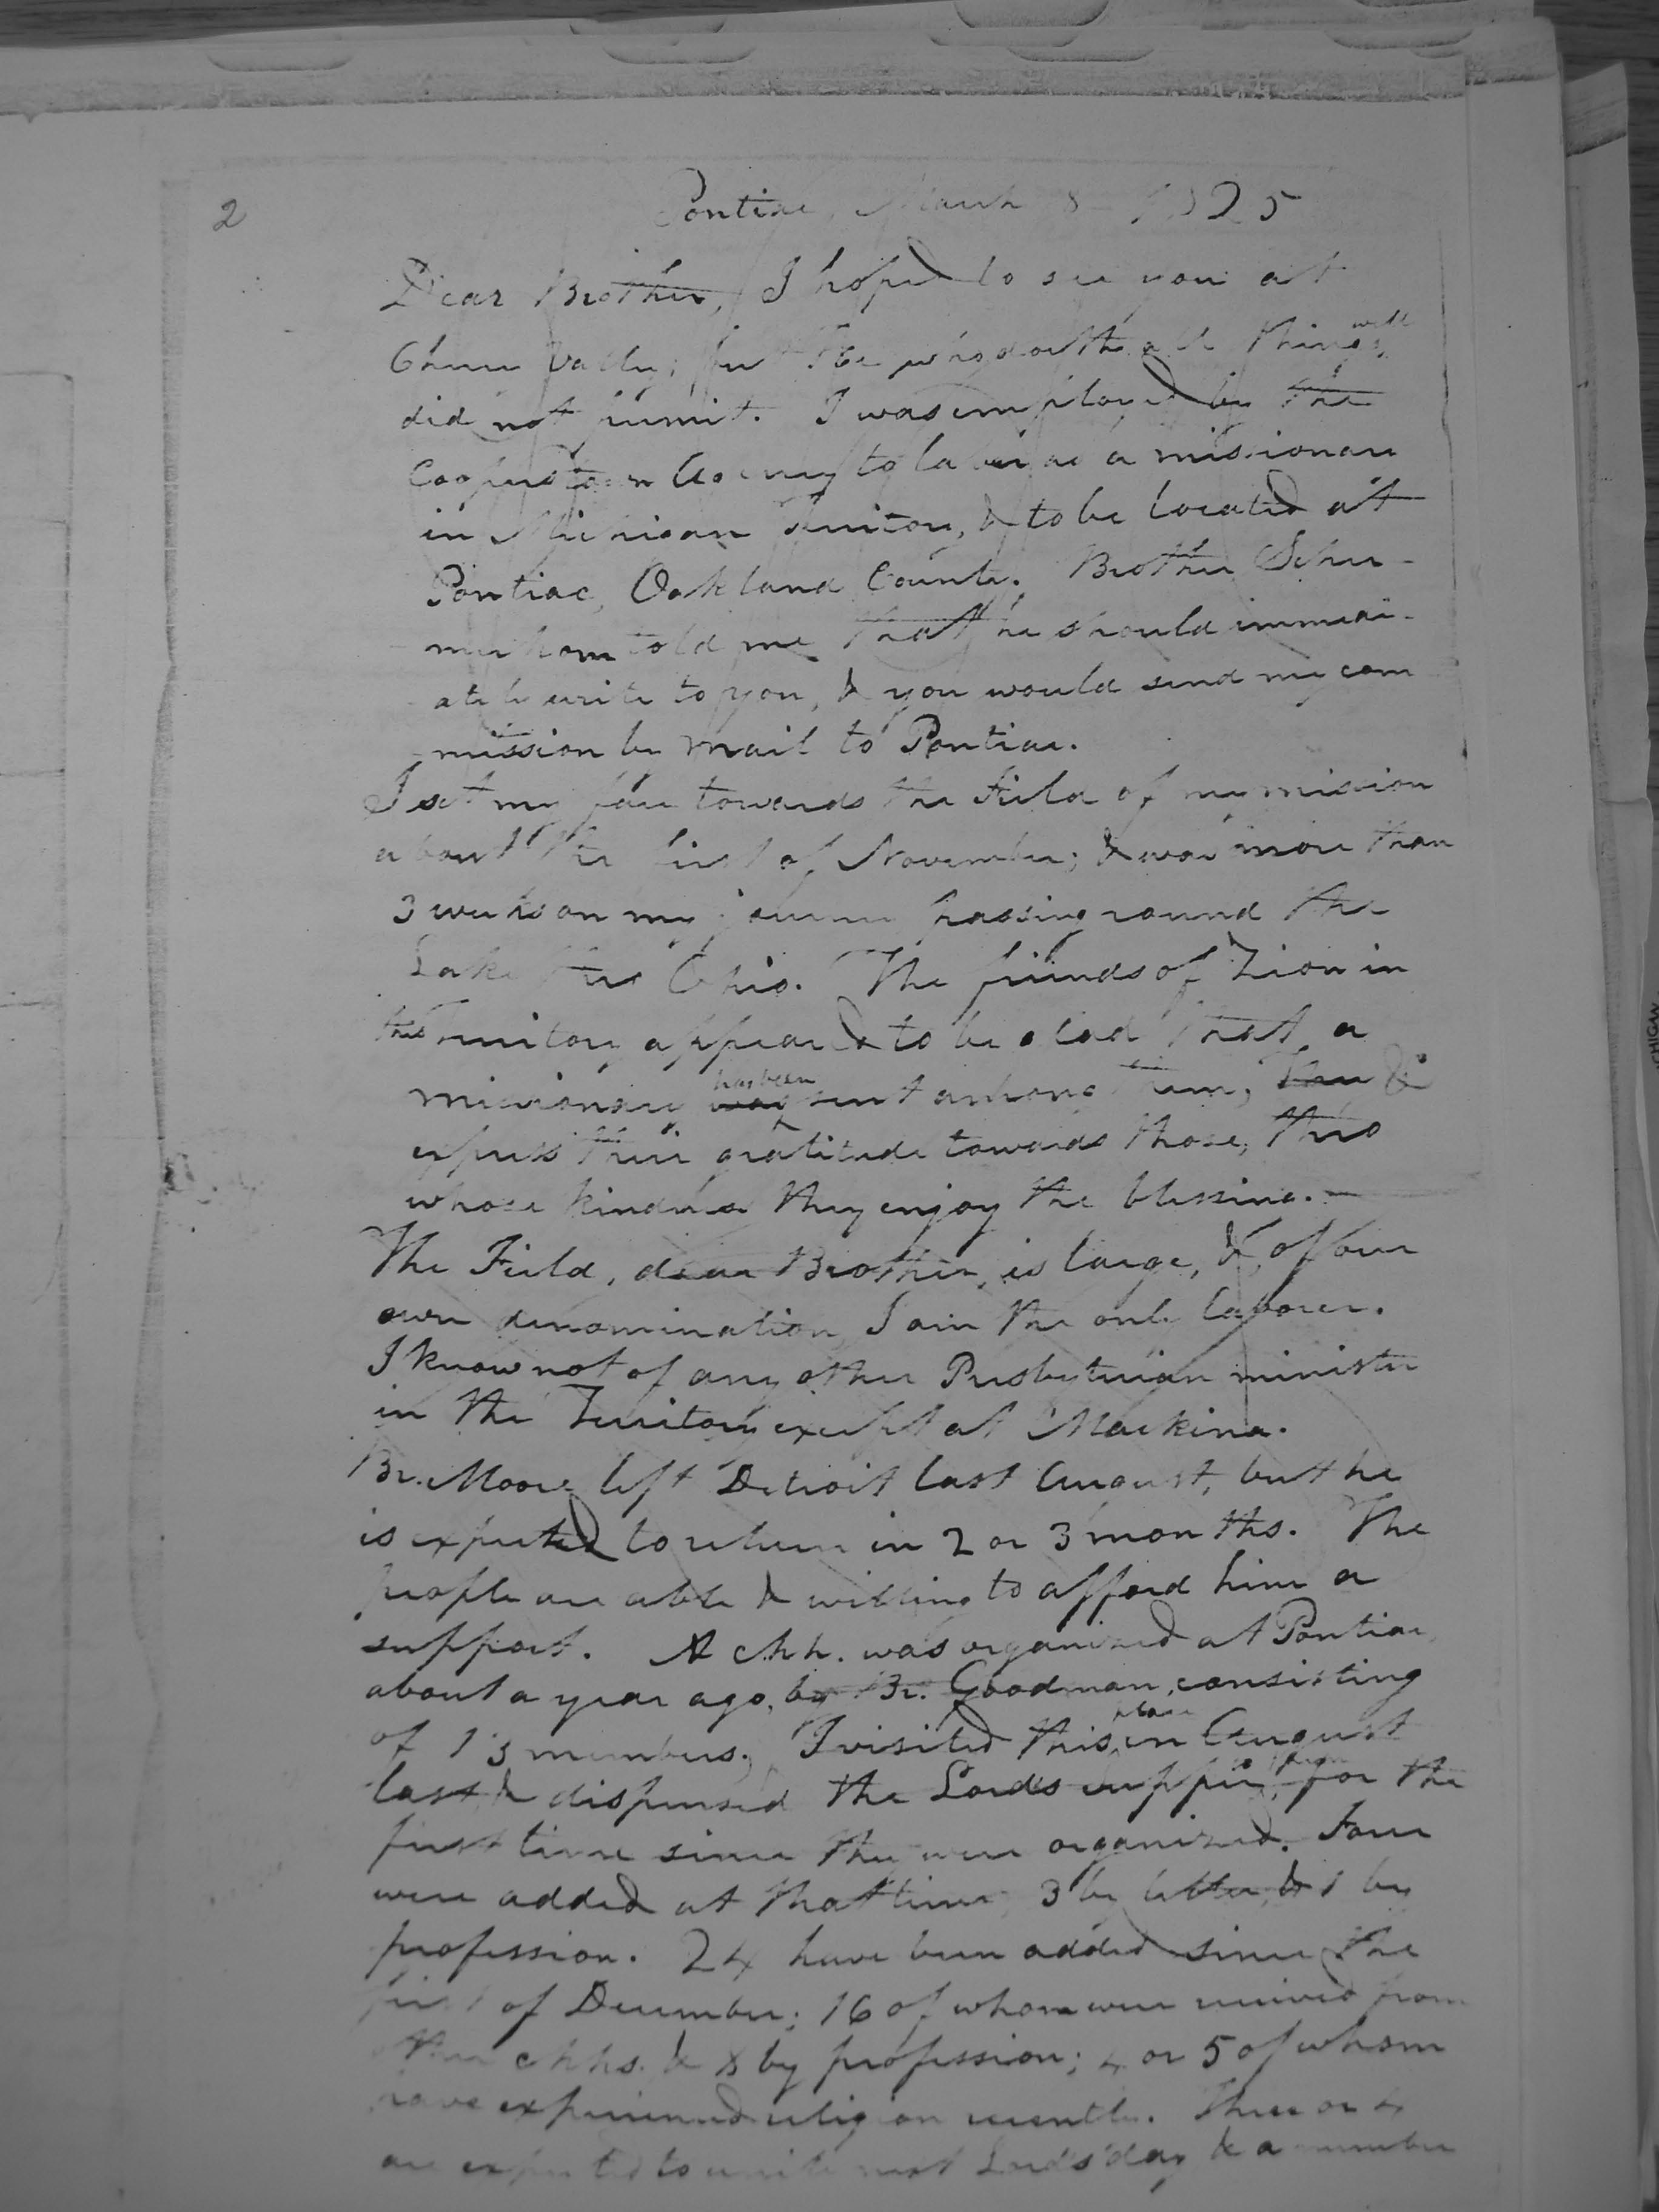 2
Pontiac, March 8 1825
Dear Brother, I hoped to see you at
Cherry Valley; but He who doeth all things well
did not permit. I was employed by the
Cooperstown Agency to labour as a missionary
in Michigan Territory, & to be located at
Pontiac, Oakland County. Brother Scher-
merhorn told me that he should immedi-
ately write to you, & you would send my com
mission by mail to Pontiac.
I set my face towards the Field of my mission
about the first of November; & was more than
3 weeks on my journey passing round the
Lake thro Ohio. The friends of Zion in
this Territory appeared to be glad that a
missionary was has been sent among them, &
express their gratitude towards those, thro
whose kindness they enjoy the blessing.—
The Field, dear Brother, is large, &, of our
own denomination, I am the only laborer.
I know not of any other Presbyterian minister
in the Territory except at Mackina.
Br. Moore left Detroit last August, but he
is expected to return in 2 or 3 months. The
people are able & willing to afford him a
support. A chh. was organized at Pontiac
about a year ago, by Br. Goodman, consisting
of 13 members. I visited this place in August
last & dispensed the Lord's supper for the
first time since they were organized. Four
were added at that time 3 by letter, & 1 by
profession. 24 have been added since the
first of December; 16 of whom were received from
other chhs. & 8 by profession; 4 or 5 of whom
have experienced religion recently. Three or 4
are expected to unite next Lord's day & a number